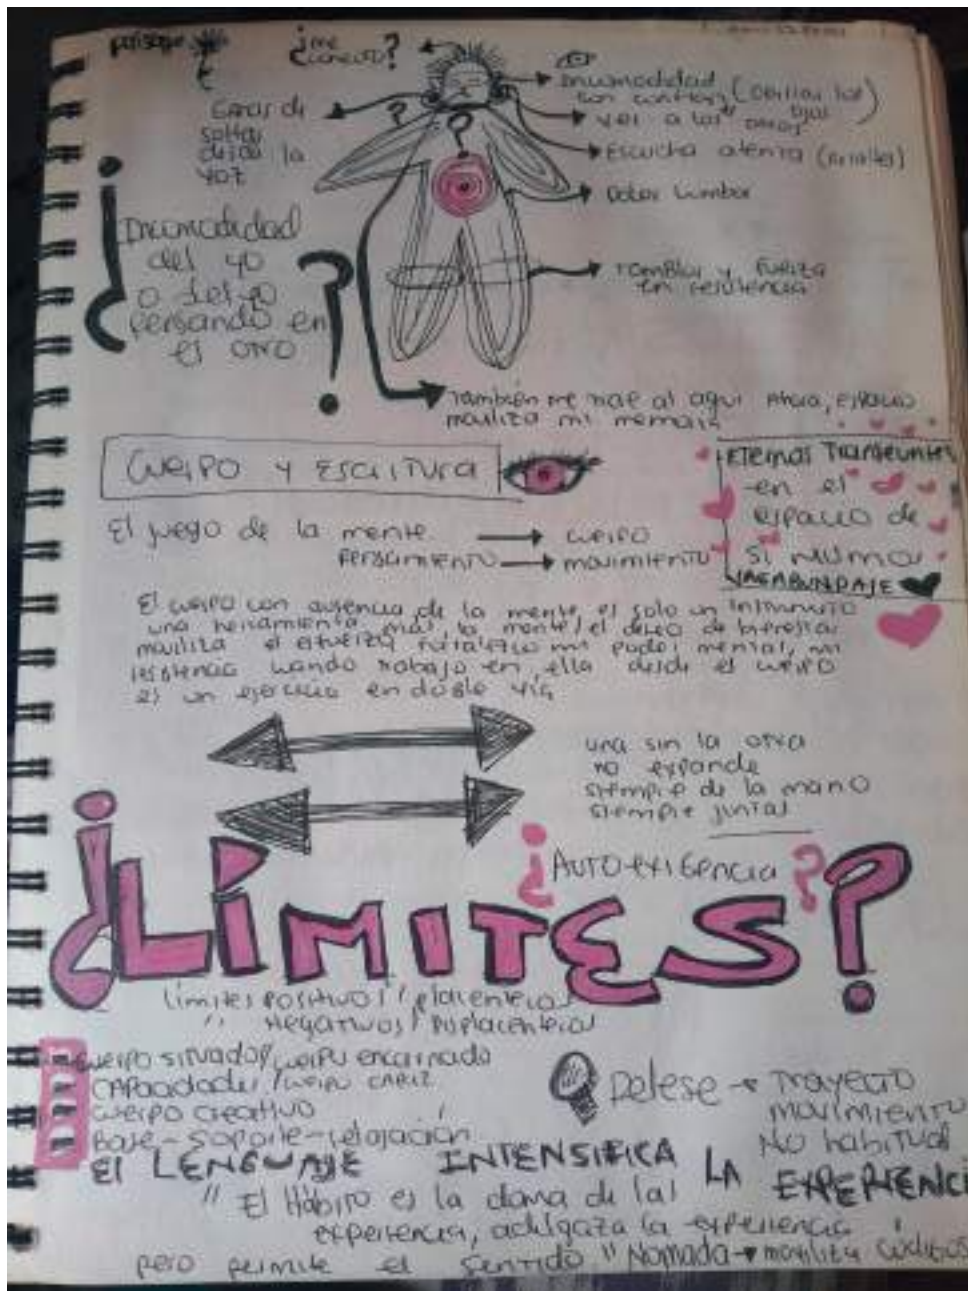 paisaje
¿me conecto?
Ganas de
soltar
desde la
voz
Incomodidad
con
(cerrar los ojos)
ver a los otros
Escucha atenta
Dolor lumbar
Temblor y fuerza
en resistencia
¿Incomodidad
del yo
o del yo
pensando en
el otro?
También me trae al aquí Ahora, espacio
moviliza mi memoria
Cuerpo y Escritura
Eternos Transeuntes
en el
espacio de
sí mismos
VAGABUNDAJE
El juego de la mente → cuerpo
Pensamiento → movimiento
El cuerpo con ausencia de la mente, es solo un instrumento
una herramienta más, la mente / el deseo de bienestar
moviliza el esfuerzo, fortalezco mi poder mental, mi
resistencia cuando trabajo en ella desde el cuerpo
es un ejercicio en doble vía
una sin la otra
no expande
siempre de la mano
siempre juntas
¿AUTO-EXIGENCIA?
¿LÍMITES?
Límites positivos / placenteros
" Negativos / Displacenteros
Cuerpo situado / cuerpo encarnado
CAPacidades / cuerpo CAPAZ
cuerpo creativo
Base - soporte - relajación
→ Trayecto
movimiento
No habitual
El LENGUAJE INTENSIFICA LA EXPERIENCI
" El Hábito es la dama de las
experiencia, adelgaza la experiencia
pero permite el sentido " Nomada → moviliza códigos